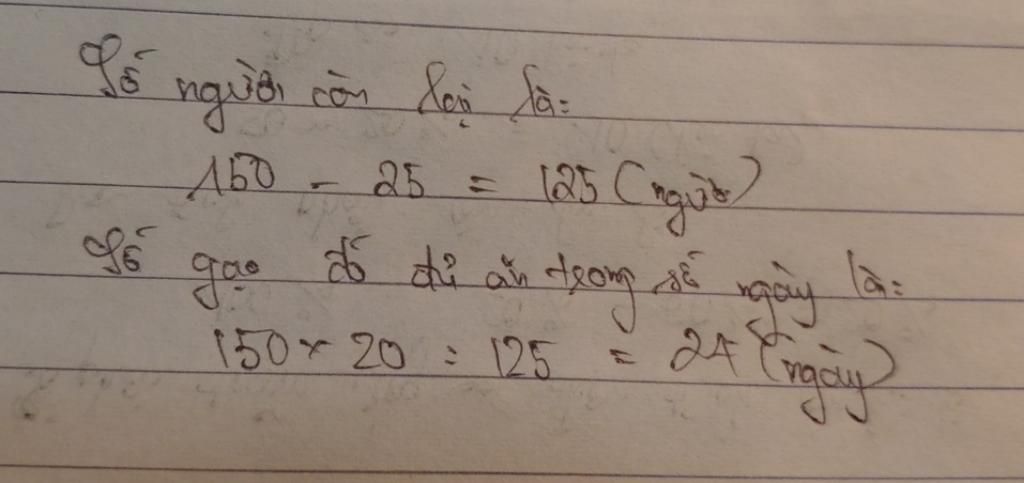 Số người còn lại là:
150 - 25 = 125 (người)
Số gạo đó đủ ăn trong số ngày là:
150 × 20 : 125 = 24 (ngày)